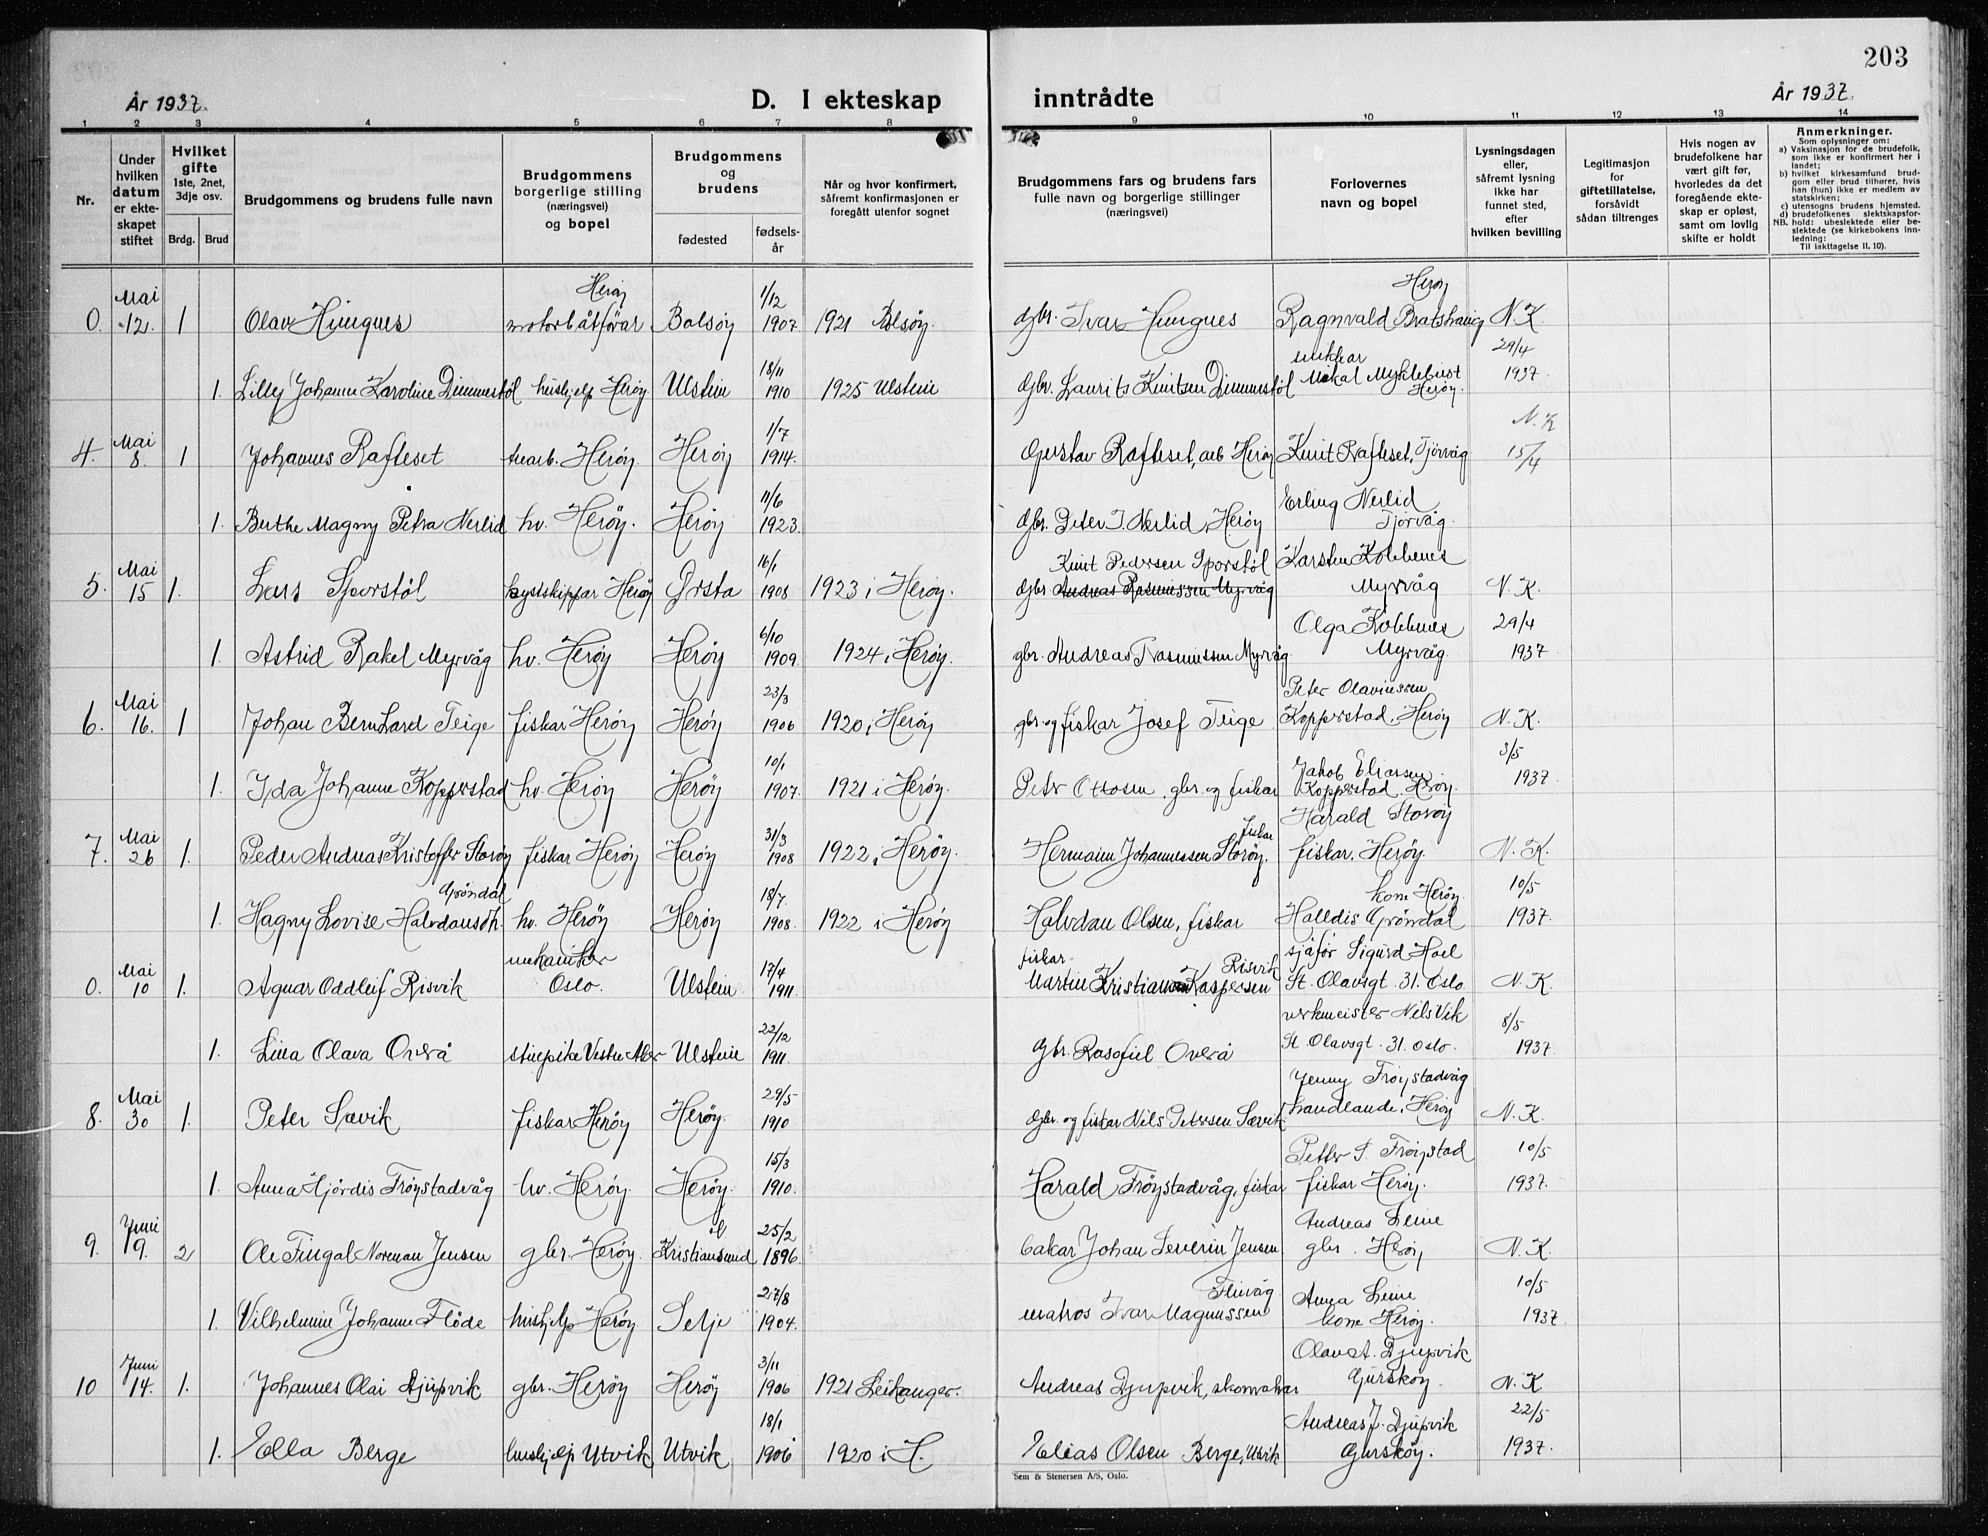 203
År 1937.
D. I ekteskap inntrådte
År 1937.
1 2 3 4 5 6 7 8 9 10 11 12 13 14
Nr.
Under hvilken datum er ekteskapet stiftet
Hvilket gifte 1ste, 2net, 3dje osv.
Brdg. Brud
Brudgommens og brudens fulle navn
Brudgommens borgerlige stilling (næringsvei) og bopel
Brudgommens og brudens
fødested
fødselsår
Når og hvor konfirmert, såfremt konfirmasjonen er foregått utenfor sognet
Brudgommens fars og brudens fars fulle navn og borgerlige stillinger (næringsvei)
Forlovernes navn og bopel
Lysningsdagen eller, såfremt lysning ikke har funnet sted, efter hvilken bevilling
Legitimasjon for giftetillatelse, forsåvidt sådan tiltrenges
Hvis nogen av brudefolkene har vært gift før, hvorledes da det foregående ekteskap er opløst, samt om lovlig skifte er holdt
Anmerkninger.
Som oplysninger om:
a) Vaksinasjon for de brudefolk, som ikke er konfirmert her i landet;
b) hvilket kirkesamfund brudgom eller brud tilhører, hvis han (hun) ikke er medlem av statskirken;
c) utensogns brudens hjemsted.
d) brudefolkenes slektskapsforhold: ubeslektede eller beslektede (se kirkebokens innledning:
NB.
Til iakttagelse II. 10).
0. Mai 12. 1 Olav Hungnes Herøy motorbåtförar Bolsøy 1/12 1907. 1921 Bolsøy. Gbr. Ivar Hungnes Ragnvald Bratshaug Herøy N.K.
1. Lilly Johanne Karoline Dimmestöl hushjelp Herøy Ulstein 18/11 1910 1925 Ulstein Gbr. Laurits Knutsen Dimmestöl Mikal Myklebust Herøy. 29/4 1937.
4. Mai 8. 1 Johannes Rafteset trearb. Herøy. Herøy 1/7 1914. Gustav Rafteset, arb Herøy Knut Rafteset, Tjörvåg N.K 15/4
1. Berthe Magny Petra Nerlid hv. Herøy. Herøy 11/6 1923. Gbr. Peter J. Nerlid, Herøy Erling Nerlid Tjorvåg.
5. Mai 15 1. Lars Sporstøl kystskippar Herøy Ørsta 16/1 1908 1923 i Herøy. Knut Pedersen Sporstøl Gbr. Andreas Rasmussen Myrvåg Karsten Kobbenes Myrvåg N.K.
1. Astrid Rakel Myrvåg hv. Herøy Herøy 6/10 1909. 1924 i Herøy. gbr. Andreas Rasmussen Myrvåg Olga Kobbenes Myrvåg 29/4 1937
6. Mai 16. 1 Johan Bernhard Teige fiskar Herøy Herøy 23/3 1906 1920 i Herøy gbr. og fiskar Josef Teige Peter Olavinssen Kopperstad, Herøy N.K.
1. Ida Johanne Kopperstad hv. Herøy Herøy 10/1 1907. 1921 i Herøy. Petr Ottosen gbr. og fiskar Jakob Eliassen Kopperstad, Herøy. 3/5 1937.
7. Mai 26 1. Peder Andreas Kristoffer Storøy fiskar Herøy Herøy 31/3 1908 1922 i Herøy. Hermann Johannessen Storøy. fiskar Harald Storøy fiskar. Herøy. N.K.
1. Hagny Lovise Halvdansdh. Grøndal hv. Herøy Herøy 18/7. 1908. 1922 i Herøy Halvdan Olsen, fiskar Halldis Grøndal kone Herøy. 10/5 1937.
0. Mai 10 1. Agnar Oddleif Risvik mekaniker Oslo. Ulstein 17/4 1911. fiskar Martin Kristian Kaspersen Risvik sjåför Sigurd Hoel St. Olavsgt. 31. Oslo N.K.
1. Lina Olava Overå stuepike Vestre Aker Ulstein 22/12 1911. Gbr. Rasofiel Overå verkmeister Nils Vik St. Olavsgt. 31. Oslo. 8/5 1937.
8. Mai 30 1. Peter Sævik fiskar Herøy Herøy. 29/5 1910 Gbr. og fiskar Nils Petersen Sævik Jenny Frøystadvåg handlande, Herøy N.K.
1. Anna Hjördis Frøystadvåg hv. Herøy. Herøy. 15/3 1910. Harald Frøystadvåg, fiskar Petter P. Frøystad fiskar Herøy. 10/5 1937.
9. Juni 9. 2 Ole Fingal Norman Jensen gbr. Herøy. Kristiansund N 25/2 1896. bakar Johan Severin Jensen Andreas Leine gbr. Herøy N.K.
1. Vilhelmine Johanne Flöde hushjelp Herøy Selje 27/8 1904. matros Ivar Magnussen Anna Leine kone Herøy. 10/5 1937.
10 Juni 14. 1. Johannes Olai Djupvik gbr. Herøy Herøy 3/11 1906 1921 Leikanger. Andreas Djupvik, skomakar Olav A. Djupvik Gurskøy. N.K
1. Ella Berge hushjelp Utvik Utvik 18/1 1906 1920 i H. Elias Olsen Berge, Utvik Andreas J. Djupvik Gurskøy. 22/5 1937.
Sem & Stenersen A/S, Oslo.